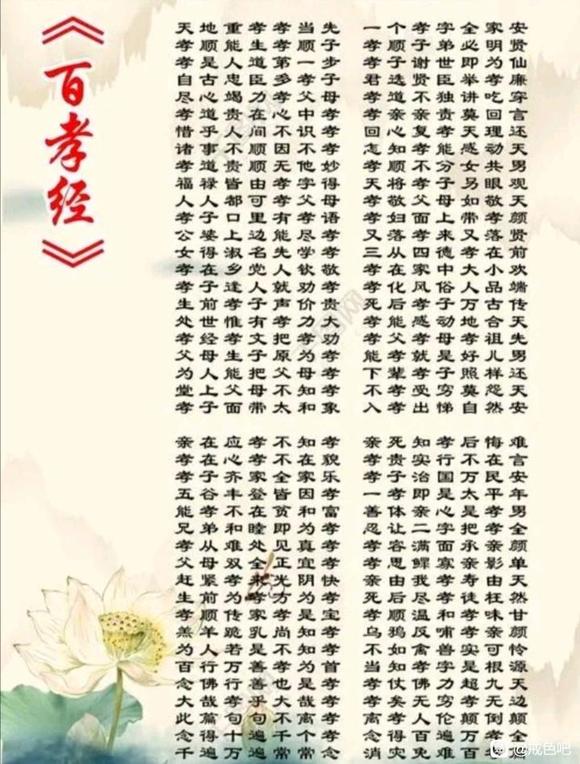 《百孝经》
天地重孝孝当先 一个孝字全家安
孝顺能生孝顺子 孝顺子弟必明贤
孝是人道第一步 孝子谢世即为仙
自古忠臣多孝子 君选贤臣举孝廉
尽心竭力孝父母 孝道不独讲吃穿
孝道贵在心中孝 孝亲亲责莫回言
惜乎人间不识孝 回心复孝天理还
诸事不顺因不孝 怎知孝能感动天
孝道贵顺无他妙 孝顺不分女共男
福禄皆由孝字得 天将孝子另眼观
人人都可孝父母 孝敬父母如敬天
孝子口里有孝语 孝妇面上带孝颜
公婆上边能尽孝 又落孝来又落贤
女得淑名先学孝 三从四德孝在前
孝在乡党人钦敬 孝在家中大小欢
孝子逢人就劝孝 孝化风俗人品端
生前孝子声价贵 死后孝子万古传
处世惟有孝力大 孝能感动地合天
孝经孝文把孝劝 孝父孝母孝祖先
父母生子原为孝 能孝就是好儿男
为人能把父母孝 下辈孝子照样还
堂上父母不知孝 不孝受穷莫怨天
孝子面带太和象 入孝出悌自然安
亲在应孝不知孝 亲死知孝后悔难
孝在心孝不在貌 孝贵实行不在言
孝子齐家全家乐 孝子治国万民安
五谷丰登皆因孝 一孝即是太平年
能孝不在贫和富 善体亲心是孝男
兄弟和睦即为孝 忍让二字把孝全
孝从难处见真孝 孝容满面承亲颜
父母双全正宜孝 孝思鳏寡亲影单
赶紧孝来光阴快 亲由我孝寿由天
生前为孝方为孝 死后尽孝徒枉然
孝顺传家孝是宝 孝顺温和孝味甘
羔羊跪乳尚知孝 乌鸦反哺孝亲颜
为人若是不知孝 不如禽兽实可怜
百行万善孝为首 当知孝字是根源
念佛行善也是孝 孝仗佛力超九天
大哉孝乎大哉孝 孝矣无穷孝无边
此篇句句不离孝 离孝人伦颠倒颠
念得十遍千个孝 念得百遍万孝全
千遍万遍常常念 消灾免难百孝
@戒色吧